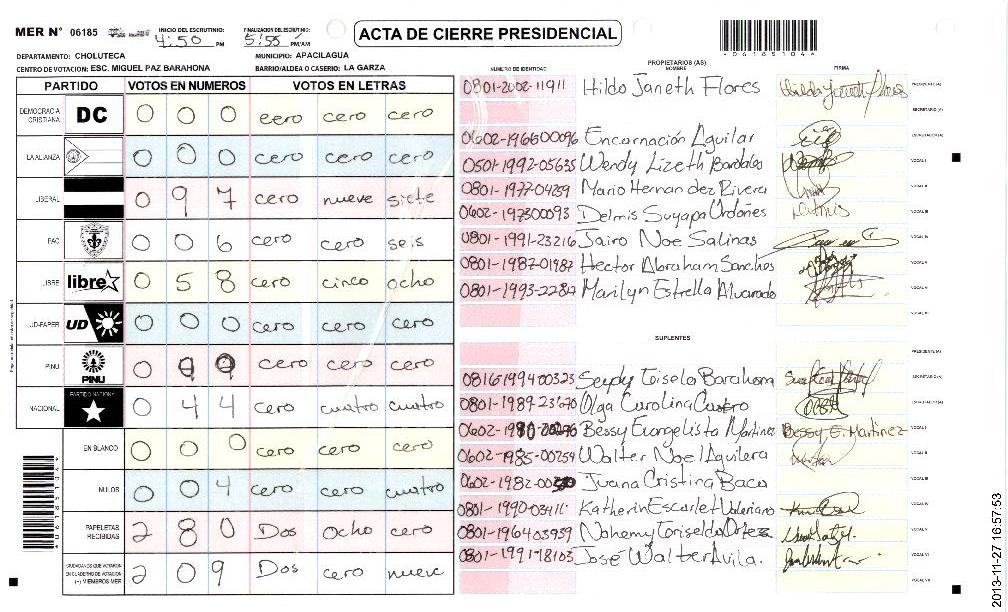 MER N° 06185 INICIO DEL ESCRUTINIO: 4:50 PM FINALIZACION DEL ESCRUTINIO: 5:55 PM/AM ACTA DE CIERRE PRESIDENCIAL
*06185104*
DEPARTAMENTO: CHOLUTECA MUNICIPIO: APACILAGUA
CENTRO DE VOTACION: ESC. MIGUEL PAZ BARAHONA BARRIO/ALDEA O CASERIO: LA GARZA
PARTIDO VOTOS EN NUMEROS VOTOS EN LETRAS
DEMOCRACIA CRISTIANA DC 0 0 0 cero cero cero
LA ALIANZA 0 0 0 cero cero cero
LIBERAL 0 9 7 cero nueve siete
PAC 0 0 6 cero cero seis
LIBRE libre 0 5 8 cero cinco ocho
UD-FAPER UD 0 0 0 cero cero cero
PINU PINU 0 cero cero cero
NACIONAL PARTIDO NACIONAL 0 4 4 cero cuatro cuatro
EN BLANCO 0 0 0 cero cero cero
NULOS 0 0 4 cero cero cuatro
PAPELETAS RECIBIDAS 2 8 0 Dos ocho cero
CIUDADANOS QUE VOTARON EN CUADERNO DE VOTACION (+) MIEMBROS MER 2 0 9 Dos cero nueve
PROPIETARIOS (AS)
NUMERO DE IDENTIDAD NOMBRE FIRMA
0801-2002-11911 Hilda Janeth Flores PRESIDENTE (A)
SECRETARIO (A)
0602-1966-00096 Encarnación Aguilar ESCRUTADOR (A)
0501-1992-05635 Wendy Lizeth Bardales VOCAL I
0801-1977-04259 Mario Hernandez Rivera VOCAL II
0602-197300093 Delmis Suyapa Ordoñes VOCAL III
0801-1991-23216 Jairo Noe Salinas VOCAL IV
0801-1987-01987 Hector Abraham Sanches VOCAL V
Marilyn Estrella Alvarado VOCAL VI
VOCAL VII
SUPLENTES
PRESIDENTE (A)
0816199400323 Barahona SECRETARIO (A)
0801-1987-23670 Olga Carolina ESCRUTADOR (A)
Bessy Evangelista Martinez Bessy E. Martinez VOCAL I
0602-1985-00254 Walter Noel Aguilera VOCAL II
Juana Cristina Baca VOCAL III
0801-1990-03411 Katherin Escarlet Valeriano VOCAL IV
0801-1964-03939 Nohemy VOCAL V
0801-1991-18103 José Walter Avila. VOCAL VI
VOCAL VII
2013-11-27 16:57:53